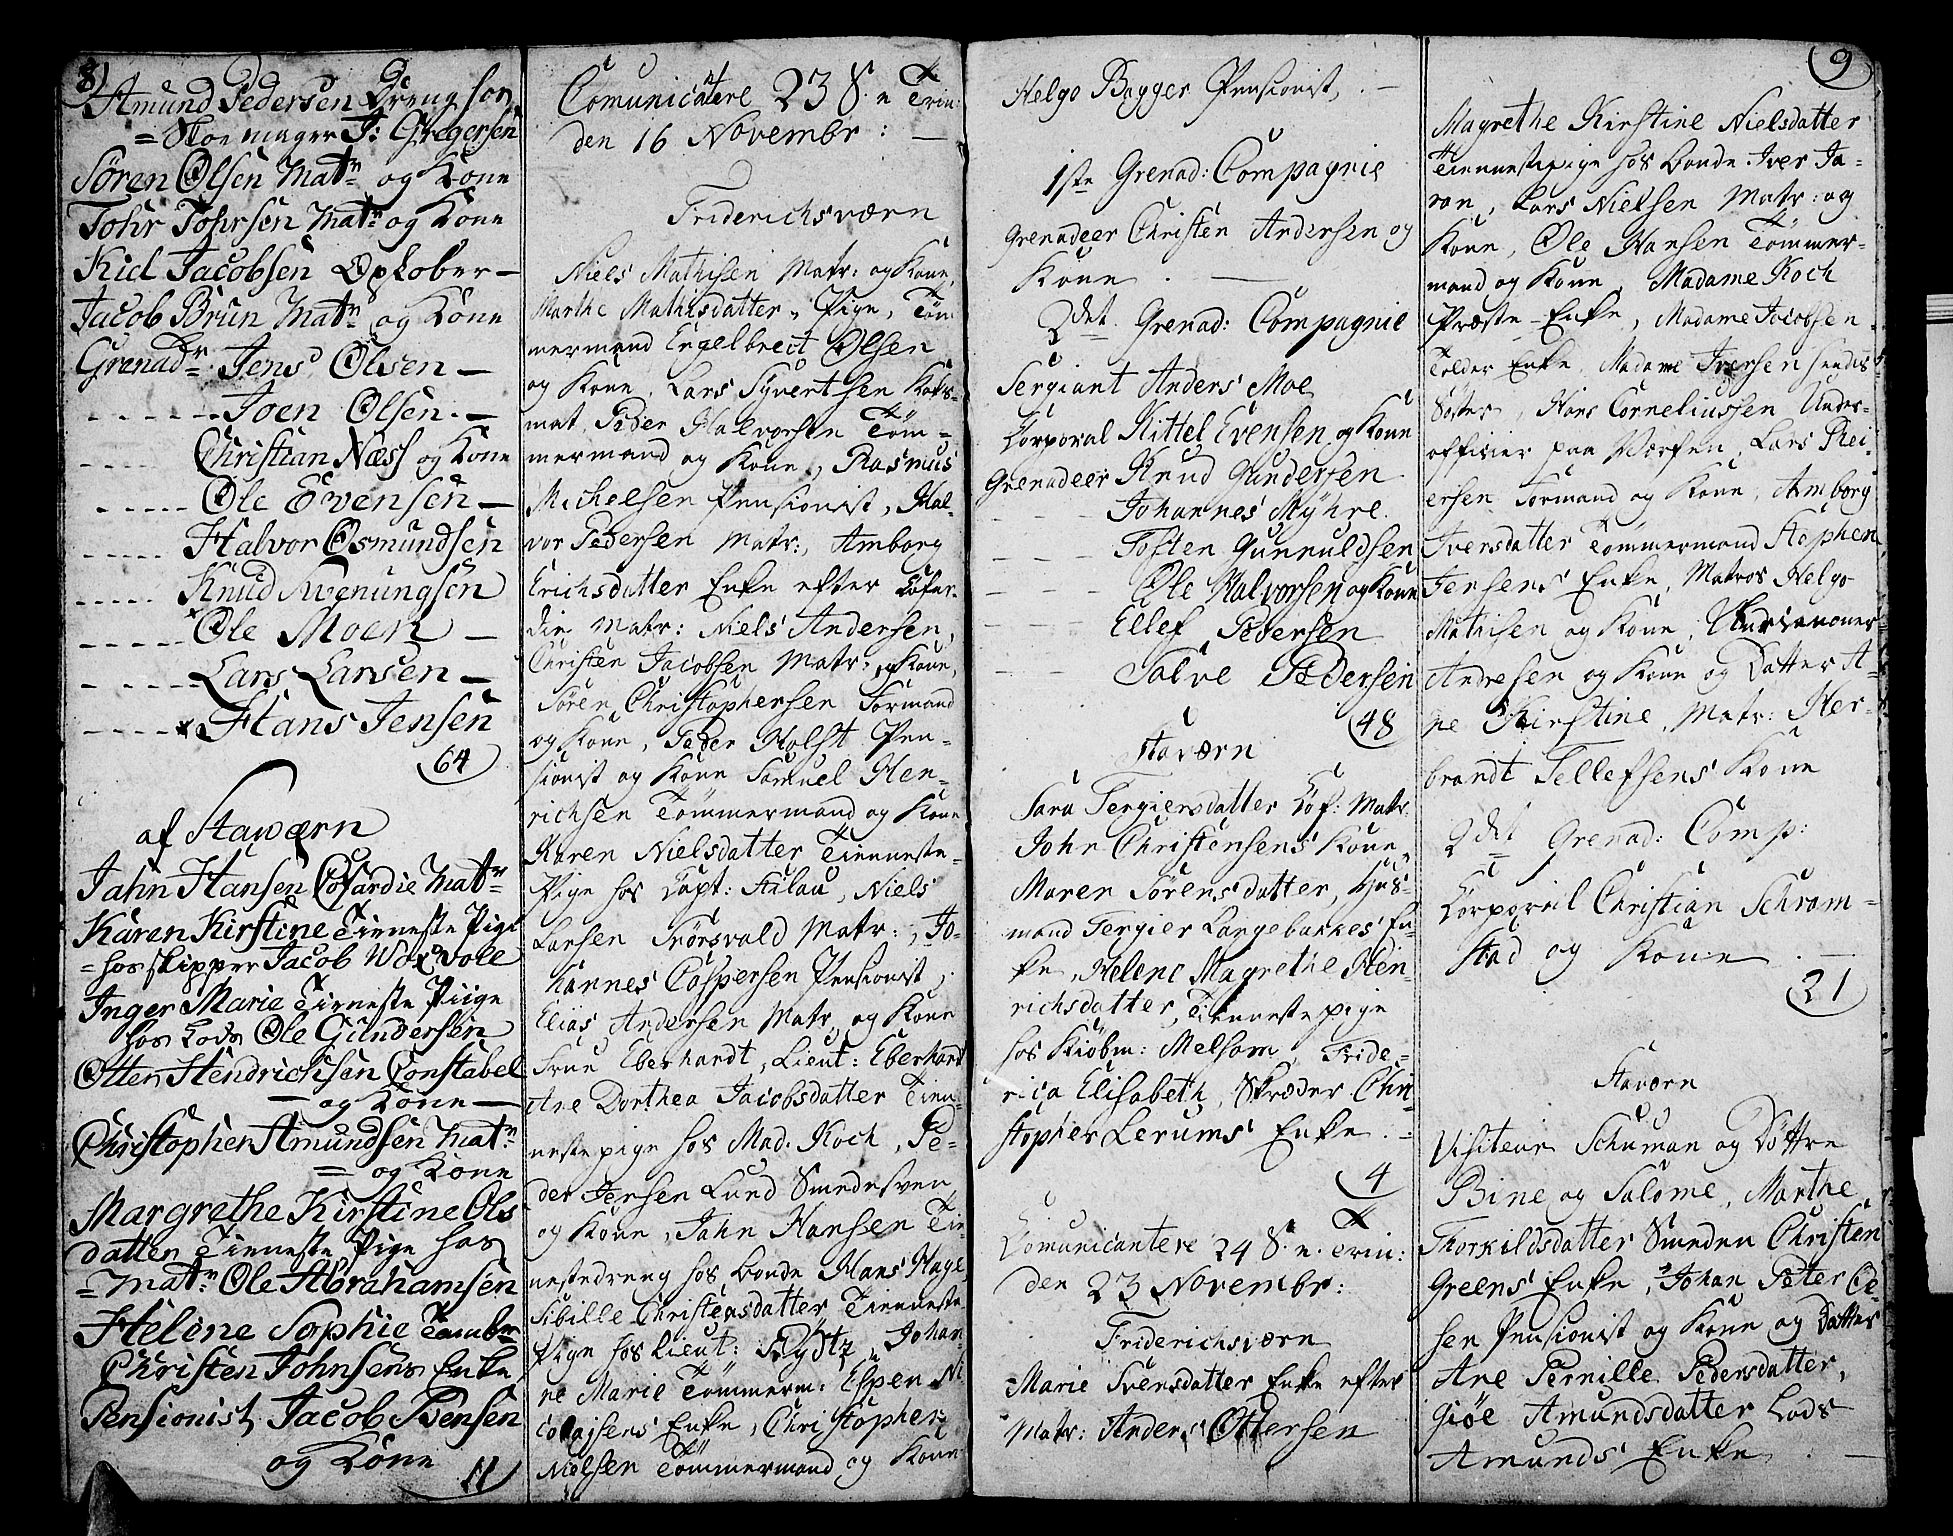 8)
Amund Pedersen Dreng hos
= Skoemager J: Gregersen
Sören Olsen Matr og Kone
Tohr Tohrsen Matr og Kone
Kiel Jacobsen Opløber —
Jacob Brun Matr og Kone
Grenadr Jens Olsen —
- - - - - - Joen Olsen. —
- - - - Christian Næss og Kone
- - - - - Ole Evensen —
- - - - - Halvor Osmundsen
- - - - - Knud Svenungsen
- - - - - Ole Moen —
- - - - - Lars Larsen —
- - - - - Hans Jensen
64
af Stawærn
Jahn Hansen Cofardie Matr
Karen Kirstine Tienneste Pige
= hos skipper Jacob
Inger Marie Tienneste Piige
hos Lods Ole Gundersen
Otter Hendrichsen Constabel
— og Kone —
Christopher Amundsen Matr
= og Kone
Margrethe Kirstine Ols
datter Tienneste Pige hos
= Matr Ole Abrahamsen
Helene Sophie Tømbr
Christen Johnsens Enke
Pensionist Jacob Bensen
og Kone
11
Comunicantere 23 S. n Trin:
den 16 Novembr: —
Friderichsværn
Niels Mathisen Matr: og Kone,
Marthe Mathisdatter, Pige, Töm
mermand Engelbrect Olsen
og Kone, Lars Syvertsen Kofs-
mat, Peder Halvorsen Töm=
mermand og Kone, Rasmus
Michelsen Pensionist, Hal-
vor Pedersen Matr:, Amborg
Erichsdatter Enke efter Cofar-
die Matr: Niels Andersen,
Christen Jacobsen Matr: og Kone,
Sören Christophersen Formand
og Kone, Peder Holst Pen-
sionist og Kone Samuel Hen-
richsen Tömmermand og Kone
Karen Nielsdatter Tienneste-
Pige hos Capt: Stilau, Niels
Larsen Frörsvald Matr:, Jo-
hannes Caspersen Pensionist,
Elias Andersen Matr og Kone
Frue Eberhardt, Lieut: Eberhardt
Ane Dorthea Jacobsdatter Tien-
nestepige hos Mad. Koch, Pe-
der Jensen Lund Smedesven
og Kone, Jahn Hansen Tie
nestedreng hos Bonde Hans Hage,
Sibille Christensdatter Tienneste
Pige hos Lieut: Bydtz, Johan-
ne Marie Tömmerm: Espen Ni
colajsens Enke, Christopher
Nielsen Tömmermand og Kone
Helge Bagger Pensionist, . —
1ste Grenad: Compagnie
Grenadeer Christen Andersen og
Kone . —
2det Grenad: Compagnie
Sergiant Anders Moe
Corporal Kittel Evensen og Kone
Grenadeer Knud Gundersen
- - - Johannes Myhre
- - - Tosten Gunnuldsen
- - - Ole Halvorsen og Kone
- - Ellef Pedersen
- - Salve Pedersen
48
Staværn
Sara Tergiersdatter Cof: Matr
John Christensens Kone,
Maren Sörensdatter, Huus-
mand Tergier Langebakkes En-
ke, Helene Magrethe Hen-
richsdatter, Tiennestepige
hos Kiöbm: Melsom, Fride-
rica Elisabeth, Skræder Chri-
stopher Lerums Enke . =
4
Comunicantere 24 S. n. Trin:
den 23 Novembr:
Friderichsværn
Marie Svensdatter Enke efter
Matr: Anders Ottersen
9
Magrethe Kirstine Nielsdatter
Tiennestepige hos Bonde Iver Ja-
ran, Lars Nielsen Matr: og
Kone, Ole Hansen Tömmer-
mand og Kone, Madame Koch
Præste-Enke, Madame Jacobsen
Tolder Enke, Madame Iversen hendes
Søster, Hans Corneliussen Under-
officier paa Værfen, Lars Rei-
ersen Formand og Kone, Amborg
Iversdatter Tömmermand Stephen
Jensens Enke, Matros Helge
Mathisen og Kone, Undercanoner
Andresen og Kone og Datter A-
ne Kirstine, Matr: Her-
brandt Tellefsens Kone
2det Grenad: Comp:
Corporal Christian Schram-
stad og Kone . —
21
Staværn
Visiteur Schuman og Döttre
Bine og Salome, Marthe
Thorkildsdatter Smeden Christen
Greens Enke, Johan Peter Ol-
sen Pensionist og Kone og Datter
Ane Pernille Pedersdatter,
Giöe Amundsdatter Lods
Amunds Enke . —